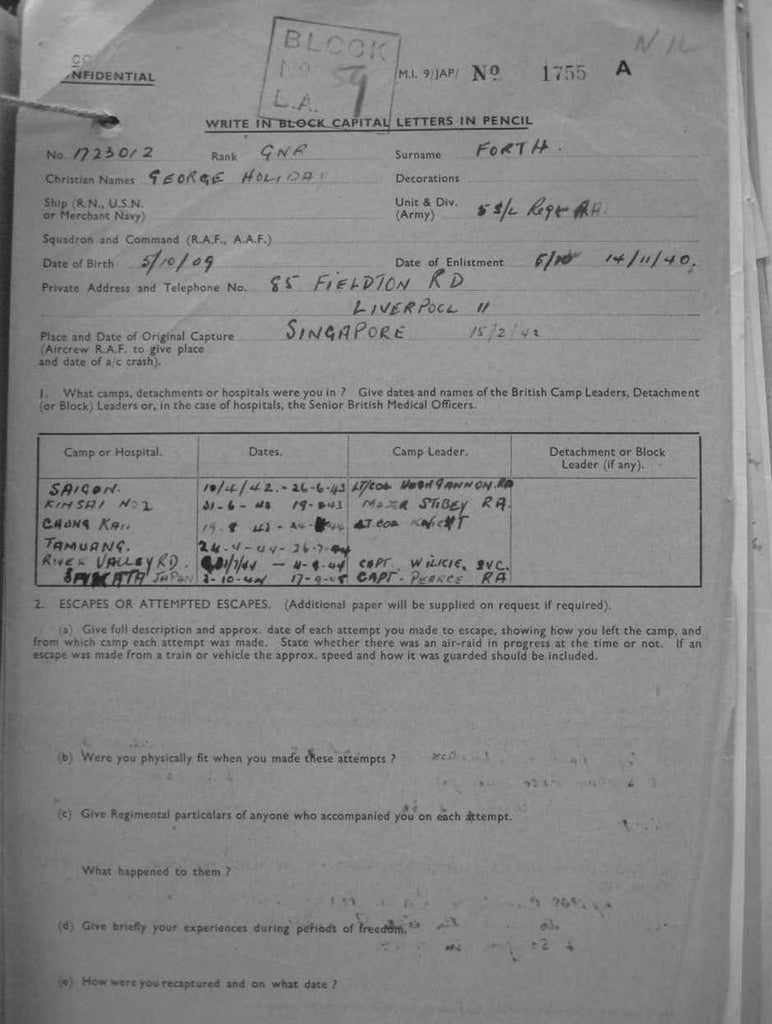 CONFIDENTIAL
BLOCK
No 59
L.A.
M.I. 9/JAP/ No 1755 A
NIL
WRITE IN BLOCK CAPITAL LETTERS IN PENCIL
No. 1723012 Rank GNR Surname FORTH.
Christian Names GEORGE HOLIDAY Decorations
Ship (R.N., U.S.N. or Merchant Navy) Unit & Div. (Army) 5 S/L Regt RA.
Squadron and Command (R.A.F., A.A.F.)
Date of Birth 5/10/09 Date of Enlistment 14/11/40.
Private Address and Telephone No. 85 FIELDTON RD
LIVERPOOL 11
Place and Date of Original Capture SINGAPORE 15/2/42
(Aircrew R.A.F. to give place
and date of a/c crash).
1. What camps, detachments or hospitals were you in ? Give dates and names of the British Camp Leaders, Detachment
(or Block) Leaders or, in the case of hospitals, the Senior British Medical Officers.
Camp or Hospital. Dates. Camp Leader. Detachment or Block
Leader (if any).
SAIGON. 10/4/42.-26-6-43 LT/COL RA
KINSAI No 1 MAJR RA.
CHUNG KAI LT. COL KNIGHT
TAMUANG. 24-4-44-26-7-44
RIVER VALLEY RD. - 4-9-44 CAPT. WILKIE, SVC.
SAKATA JAPAN 3-10-44 17-9-45 CAPT- PEARCE RA
2. ESCAPES OR ATTEMPTED ESCAPES. (Additional paper will be supplied on request if required).
(a) Give full description and approx. date of each attempt you made to escape, showing how you left the camp, and
from which camp each attempt was made. State whether there was an air-raid in progress at the time or not. If an
escape was made from a train or vehicle the approx. speed and how it was guarded should be included.
(b) Were you physically fit when you made these attempts ?
(c) Give Regimental particulars of anyone who accompanied you on each attempt.
What happened to them ?
(d) Give briefly your experiences during periods of freedom.
(e) How were you recaptured and on what date ?